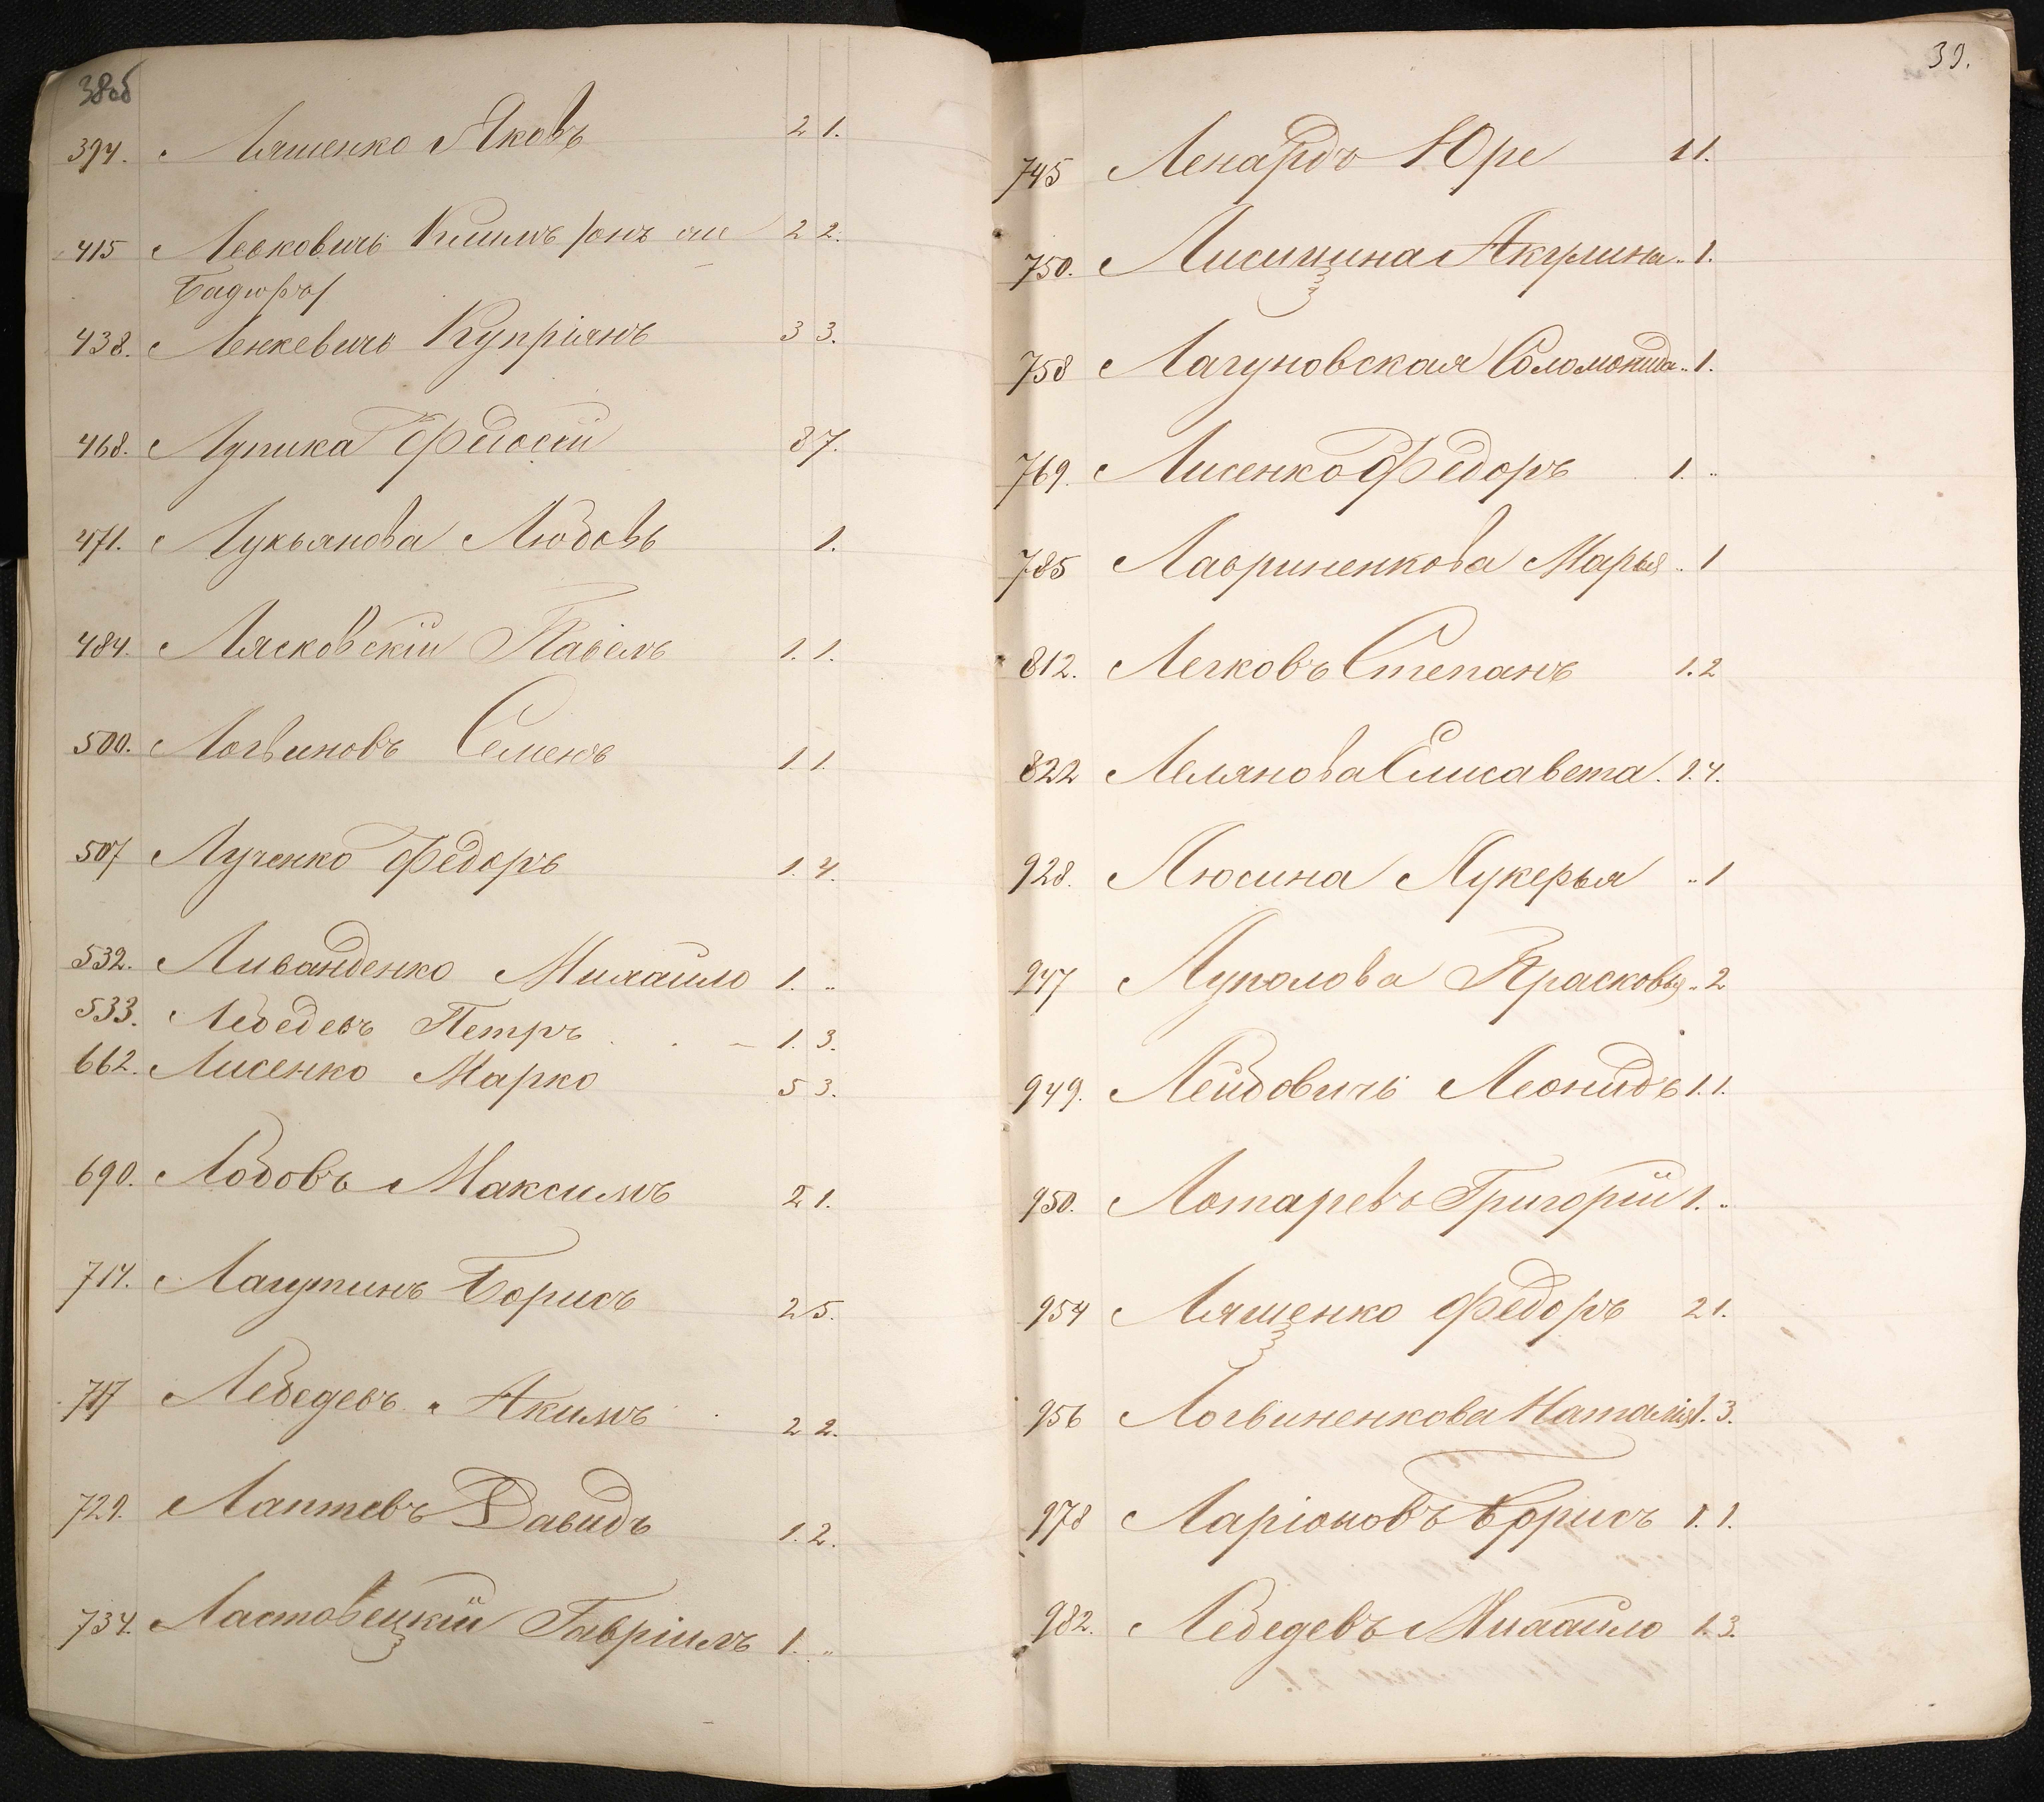 38об
394. Ляшенко Яковъ 2 1.
415 Левковичь Климъ /онъ же 2 2.
438. Ленкевичъ Купріянъ 3 3.
468. Лупика Феосій 8 7.
471. Лукьянова Любовь 1.
484. Лясковскій Павелъ 1. 1.
500. Логвиновъ Семенъ 1. 1.
507 Лученко Федоръ 1. 4.
532. Ливанденко Михайло 1. "
533. Лебедевъ Петръ 1. 3.
662. Лисенко Марко 5 3.
690. Лобовъ Максимъ 2 1.
714. Лагутинъ Борисъ 2 5.
717 Лебедевъ Акимъ 2 2.
729. Лаптевъ Давидъ 1. 2.
734. Ластовецкій Гавріилъ 1. "
39.
745 Ленардъ Юре 1 1.
750. Лисицина Акулина " 1.
758 Лагуновская Соломонида " 1.
769. Лисенко Федоръ 1. "
785 Лавриненкова Марья " 1
812. Легковъ Степанъ 1. 2
822 Лелянова Елисавета. 1. 4.
928. Люсина Лукерья " 1
947 Луполова Прасковья " 2
949. Лейбовичъ Леонидъ 1. 1.
950. Лотаревъ Григорій 1. "
954 Лященко Федоръ 2 1.
956 Логвиненкова Наталія 1. 3.
978 Ларіоновъ Борисъ 1. 1.
982. Лебедевъ Михайло 1. 3.